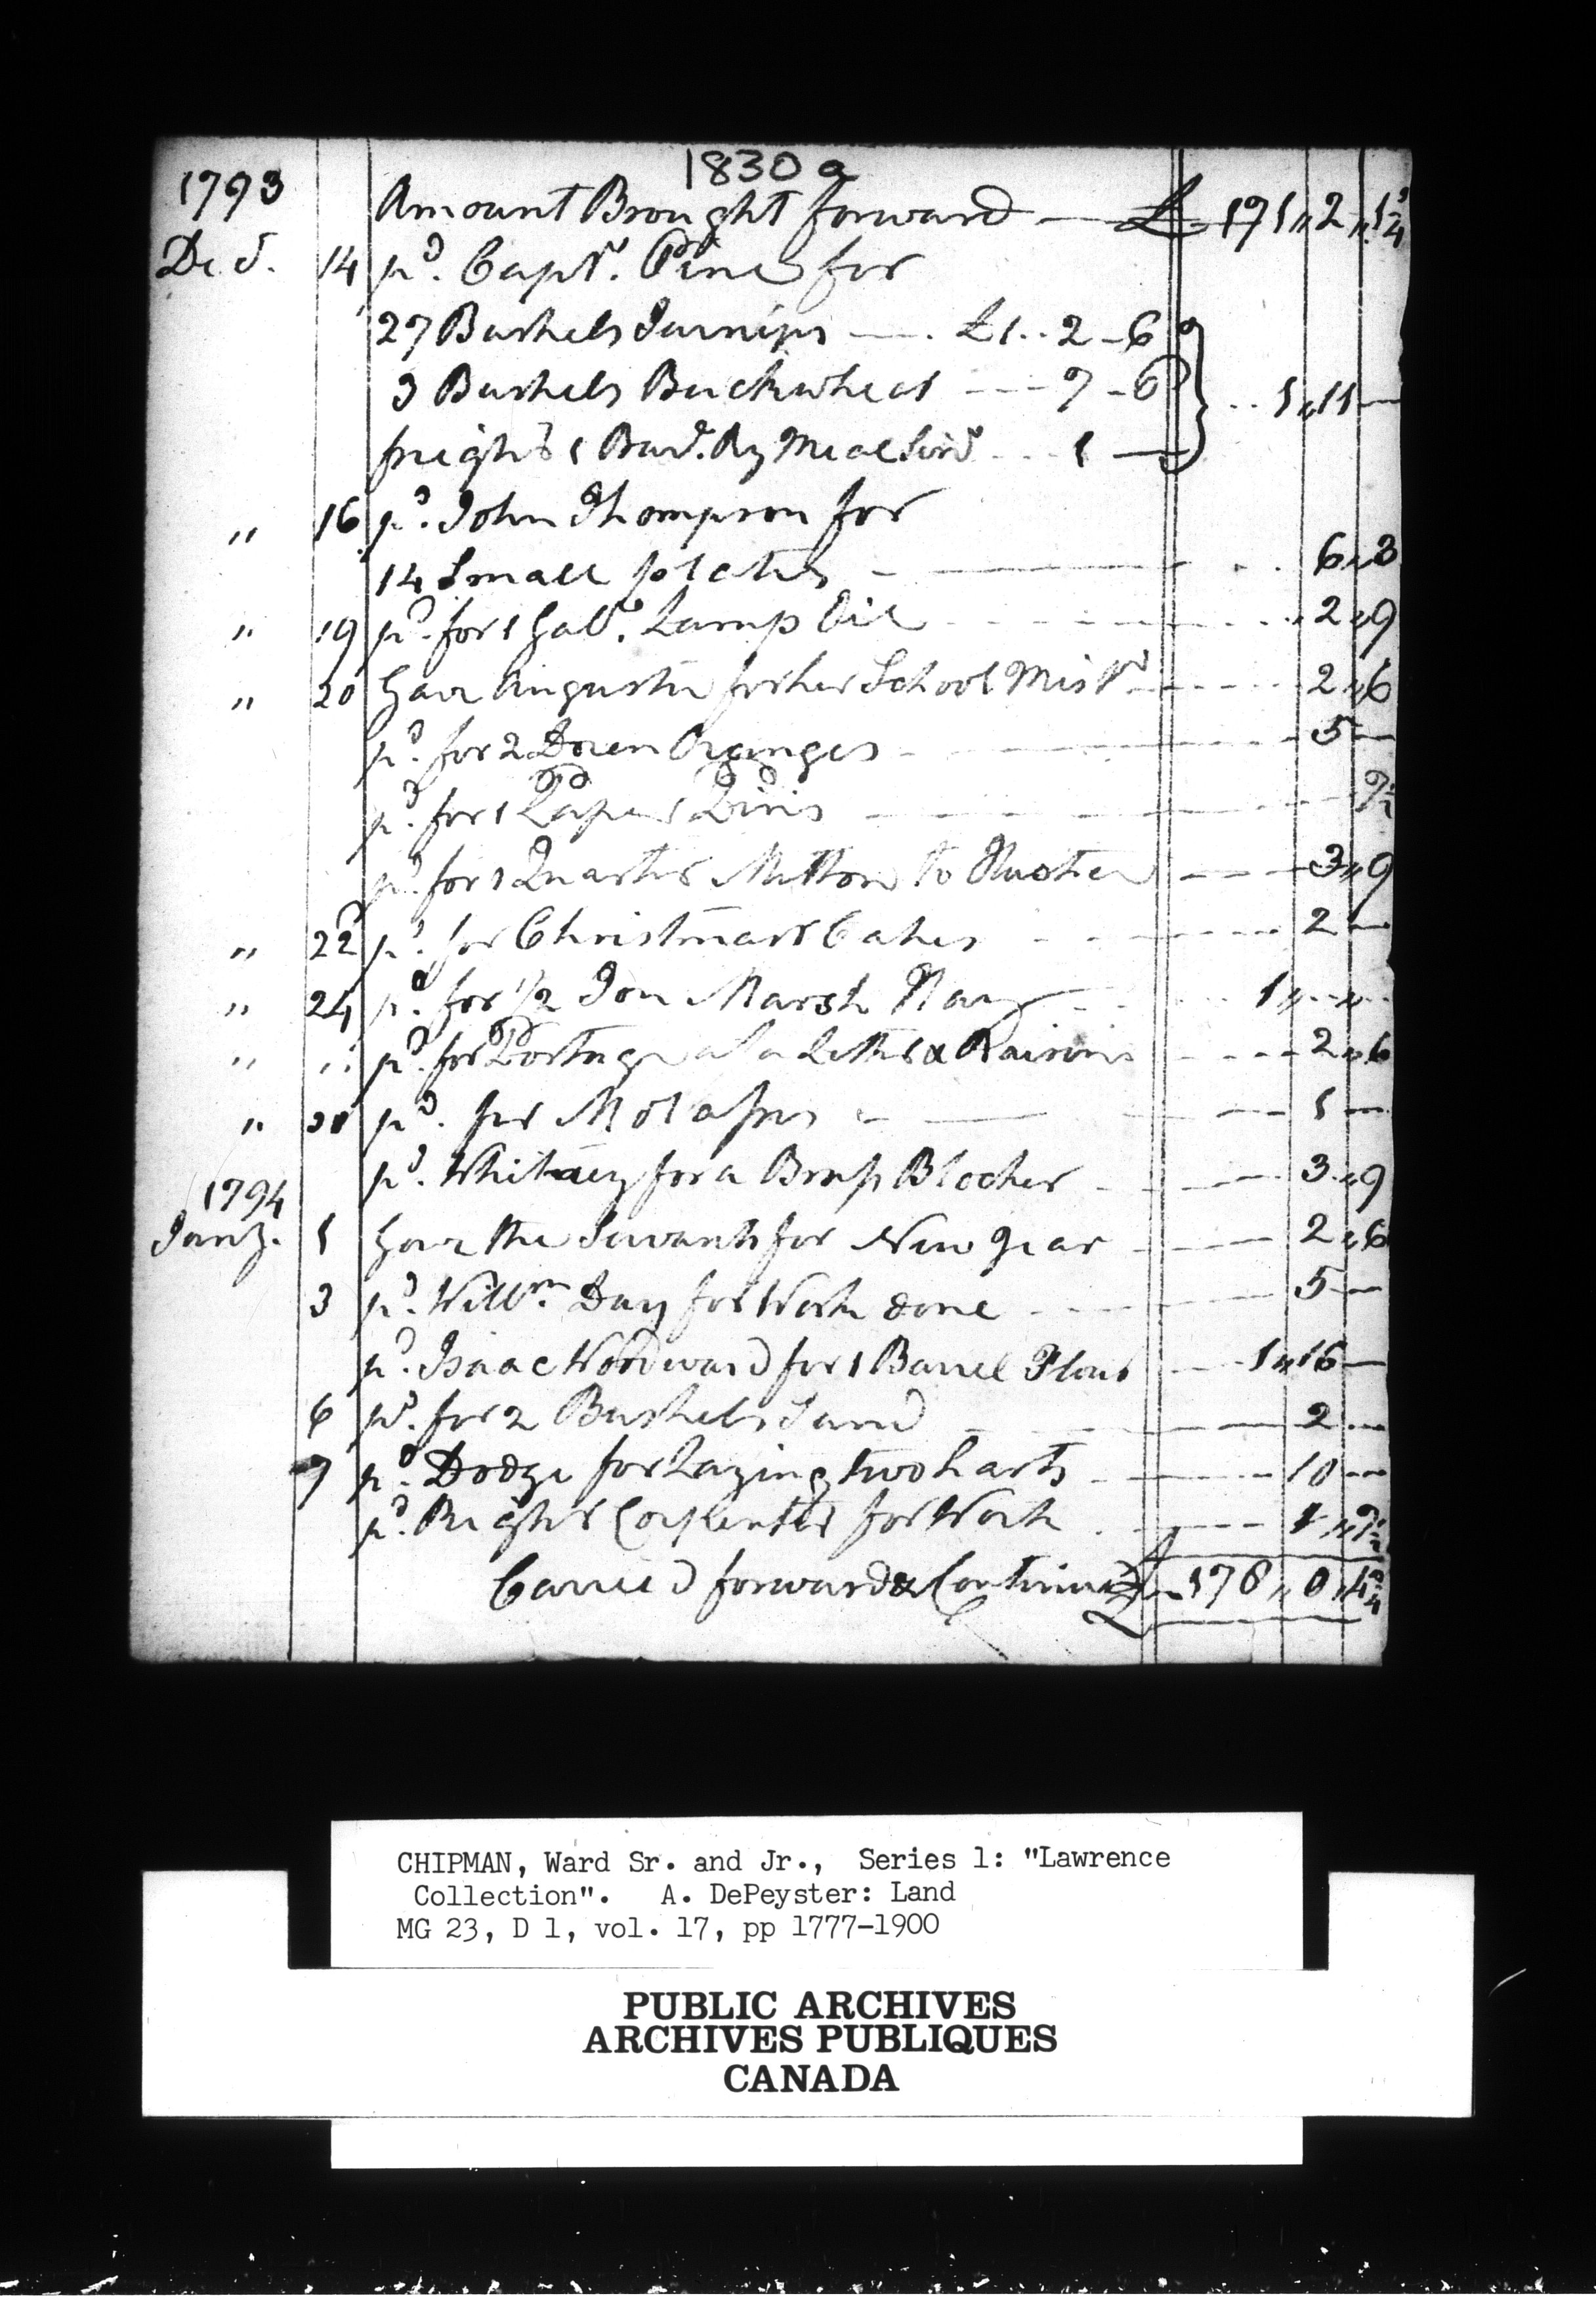 1830 a
1793 Amount Brought forward — £ 171 „ 2 „ 1¾
Decr. 14 pd. Captn. Pine for
27 Bushels Turnips — . £1 .. 2 - 6
3 Bushels Buckwheat --- 7 - 6 } .. 1 „ 11 —
freight 1 Barl. Ry Meal ... 1 —
„ 16 pd. John Thompson for
14 Small plates - — . . 6 „ 3
„ 19 pd. for 1 Gall. Lamp Oil - - - - 2 „ 9
„ 20 Gave Augusta for her School Mistrs - - - - 2 „ 6
pd. for 2 Dozen Oranges - — 5 —
pd. for 1 Paper Pins - — 9½
pd. for 1 Quarter Mutton to — 3 „ 9
„ 22d pd. for Christmass Cakes - - - 2 —
„ 24 pd. for 1/2 Ton Marsh Hay - - - 1 „ .. „ ..
„ „ pd. for Postage of a Letter & Raisins - - - 2 „ 6
„ 31 pd. for Molasses - — 1 —
pd. Whitney for a Blocker - — 3 „ 9
1794
Jany. 1 Gave the Servants for New Year - — 2 „ 6
3 pd. Willm. Day for Work done - — 5 —
pd. Isaac Woodward for 1 Barrel Flour - — 1 „ 16 —
6 pd. for 2 Bushels Sand - — 2 —
7 pd. Dodge for Laying two harts - — 10 —
pd. Carpenter for Work . — 1 „ 7½
Carried forward & Continued £ 178 „ 0 „ 4¾
CHIPMAN, Ward Sr. and Jr., Series 1: "Lawrence
Collection". A. DePeyster: Land
MG 23, D 1, vol. 17, pp 1777-1900
PUBLIC ARCHIVES
ARCHIVES PUBLIQUES
CANADA